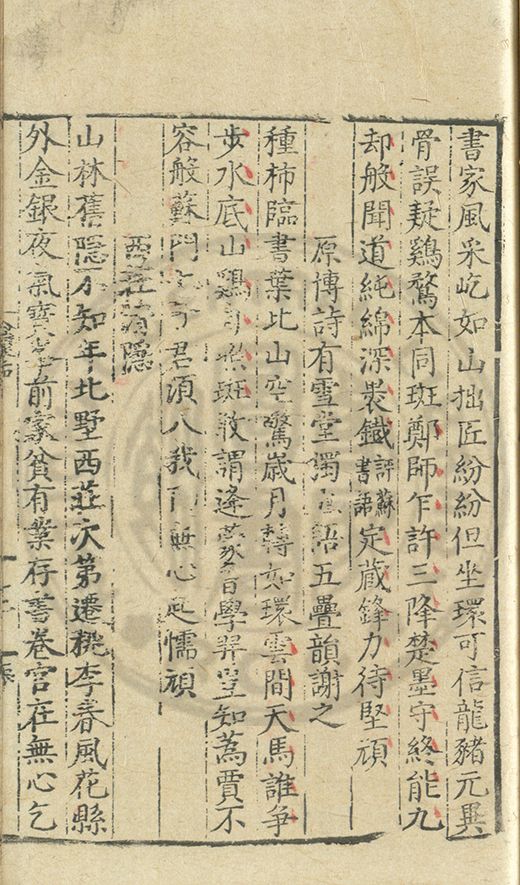 書家風采屹如山拙匠紛紛但坐環可信龍豬元異
骨誤疑鷄鶩本同斑鄭師乍許三降楚墨守終能九
却般聞道純綿深褁鐵評蘇書語定蔵鋒力待堅頑
原博詩有雪堂獨語五疊韻謝之
種柿臨書葉比山空驚歳月如環雲間天馬誰爭
步水底山鷄斑敢謂逢蒙曾學羿豈知為賈不
容般蘇門君須八我無心起懦頑
西莊隱
山林舊隱不知年北墅西莊次第遷桃李春風花縣
外金銀夜氣前家貧有業存書卷官在無心乞